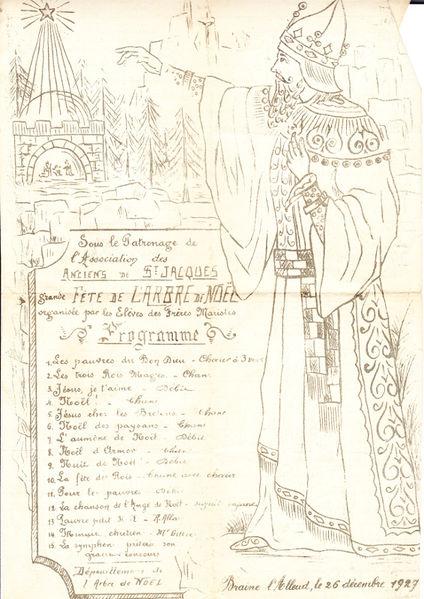 Sous le Patronage de
l'Association des
ANCIENS DE ST JACQUES
grande FÊTE DE L'ARBRE DE NOËL
organisée par les Elèves des Frères Maristes
Programme
1. Les pauvres du Bon Dieu - Chœur à 3 voix
2. Les trois Rois Mages. - Chant
3. Jésus, je t'aime - Débit
4. Noël! - Chant
5. Jésus chez les Bretons - Chant
6. Noël des paysans - Chant
7. L'aumône de Noël - Débit
8. Noël d'Armor - Chant
9. Nuit de Noël - Débit
10. La fête des Rois - Chant avec chœur
11. Pour le pauvre - Débit
12. La chanson de l'Ange de Noël
13. Pauvre petit
14. chrétien - Mr
15. La symphonie prêtera son
gracieux concours
Dépouillement de
l'Arbre de NOËL
Braine l'Alleud, le 26 décembre 1927